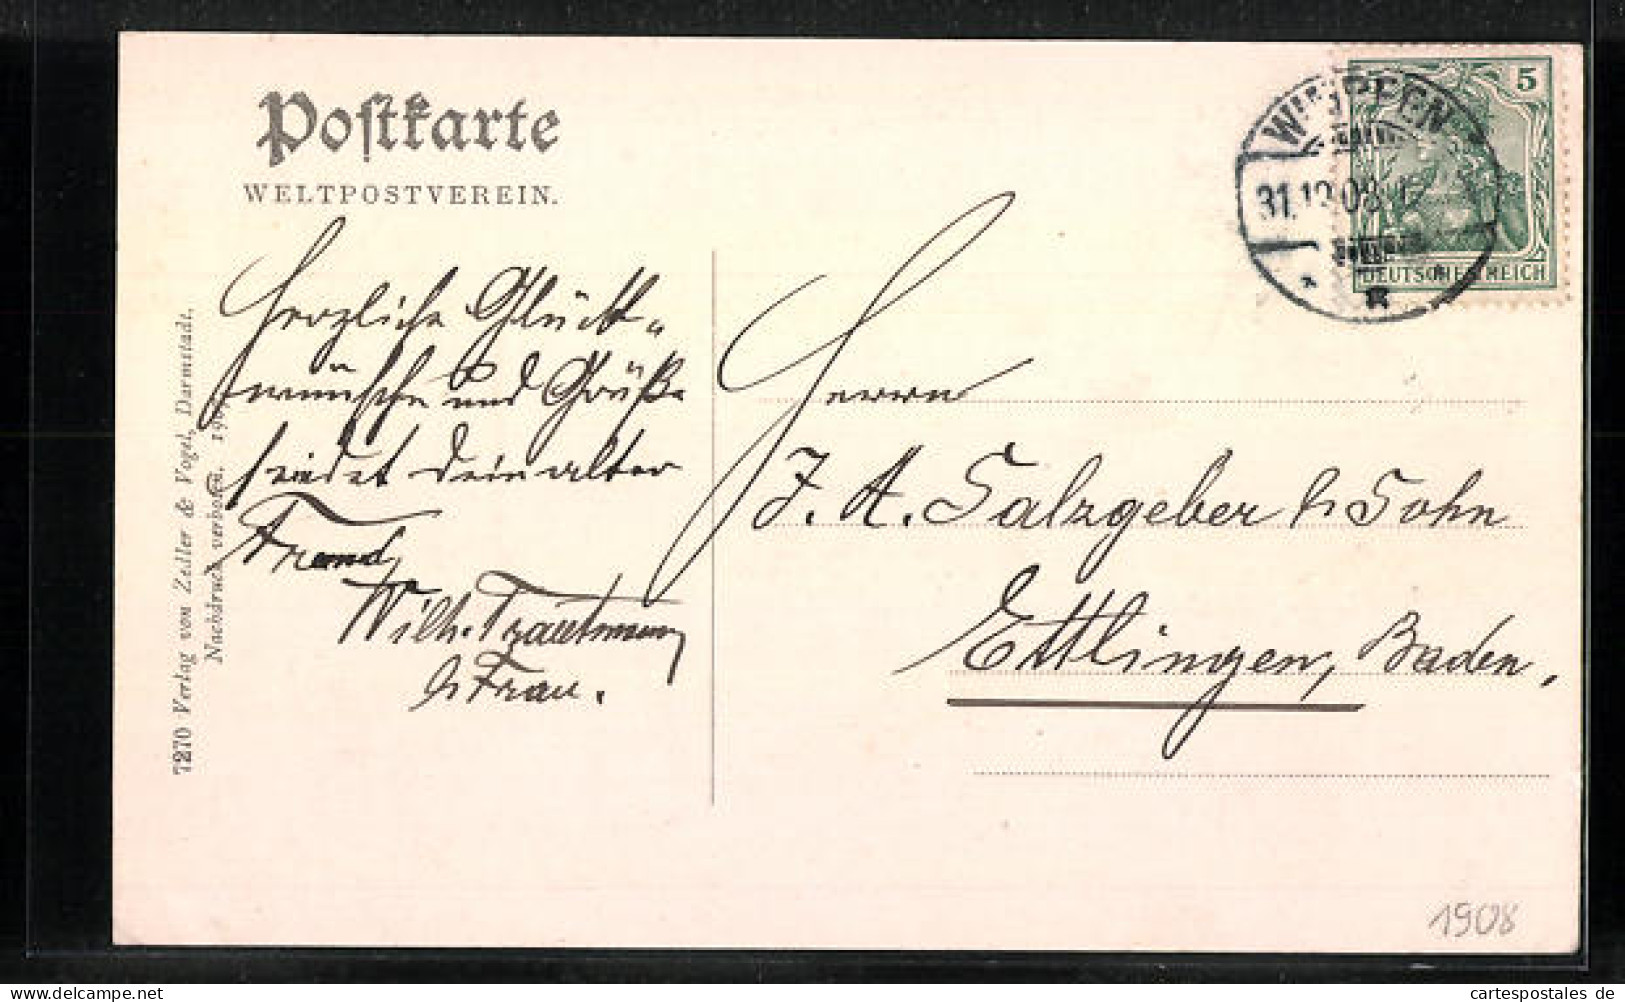 Postkarte
WELTPOSTVEREIN.
Herzliche Glück-
wünsche und Grüße
sendet dein alter
Freund
Wilh. Trautmann
& Frau.
7270 Verlag von Zedler & Vogel, Darmstadt.
Nachdruck verboten.
5
DEUTSCHES REICH
31.12.08.
Herrn
J. A. Salzgeber & Sohn
Ettlingen, Baden.
1908
www.delcampe.net
cartespostales de